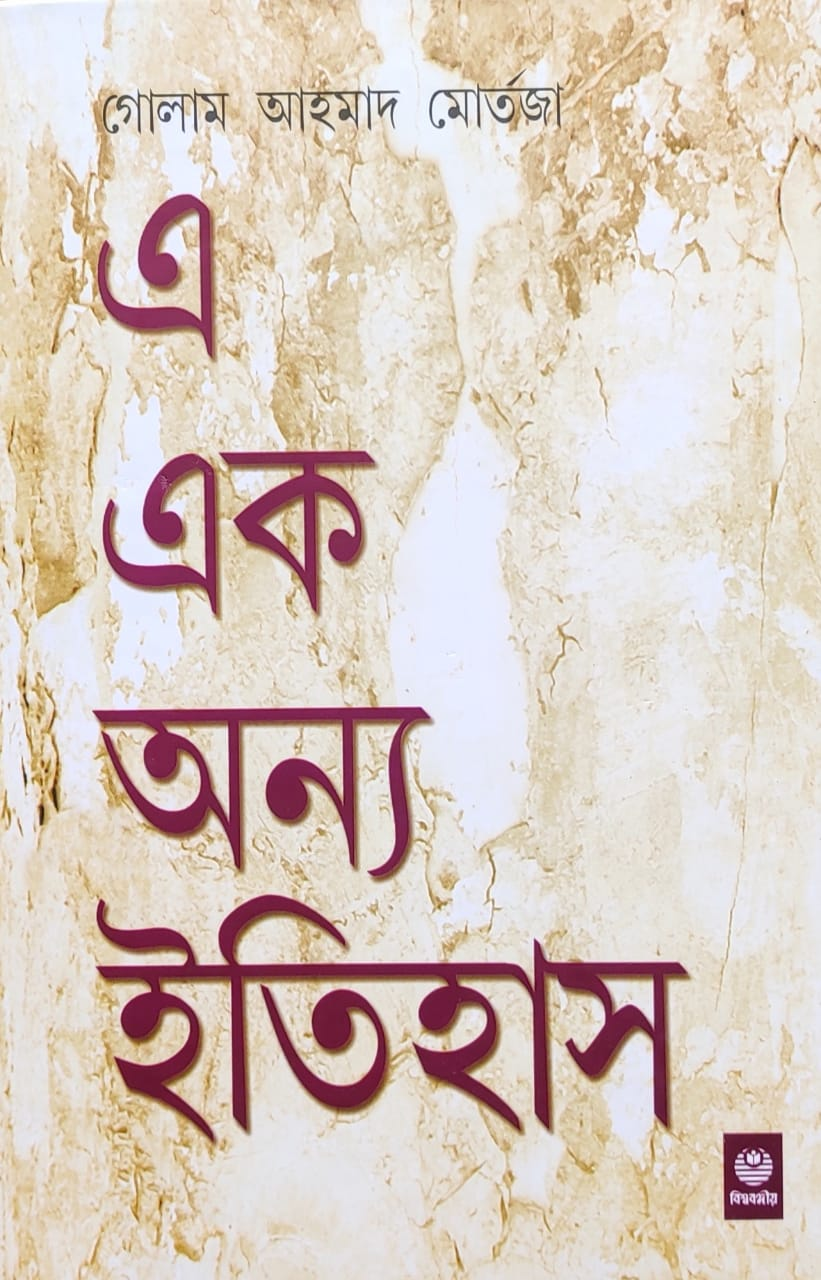 গোলাম আহমাদ মোর্তজা
এ
এক
অন্য
ইতিহাস
বিশ্ববঙ্গীয়